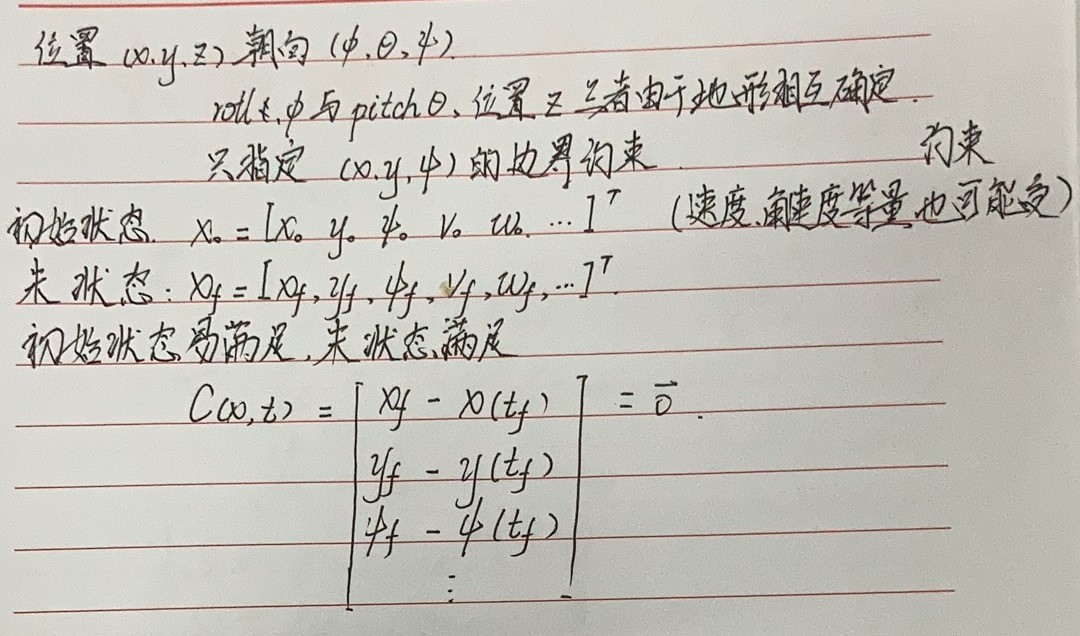 位置 (x.y.z) 朝向 (ϕ.θ.ψ).
roll ϕ 与 pitch θ、位置 z 三者由于地形相互确定.
只指定 (x.y,ψ) 的边界约束.
约束
初始状态. x₀ = [x₀ y₀ ψ₀ v₀ w₀. …]ᵀ (速度、角速度等量也可能受)
末状态: x_f = [x_f, y_f, ψ_f, v_f, w_f, …]ᵀ.
初始状态易满足, 末状态满足
C(x,t) = [ x_f - x(t_f) ] = 0⃗.
y_f - y(t_f)
ψ_f - ψ(t_f)
⋮